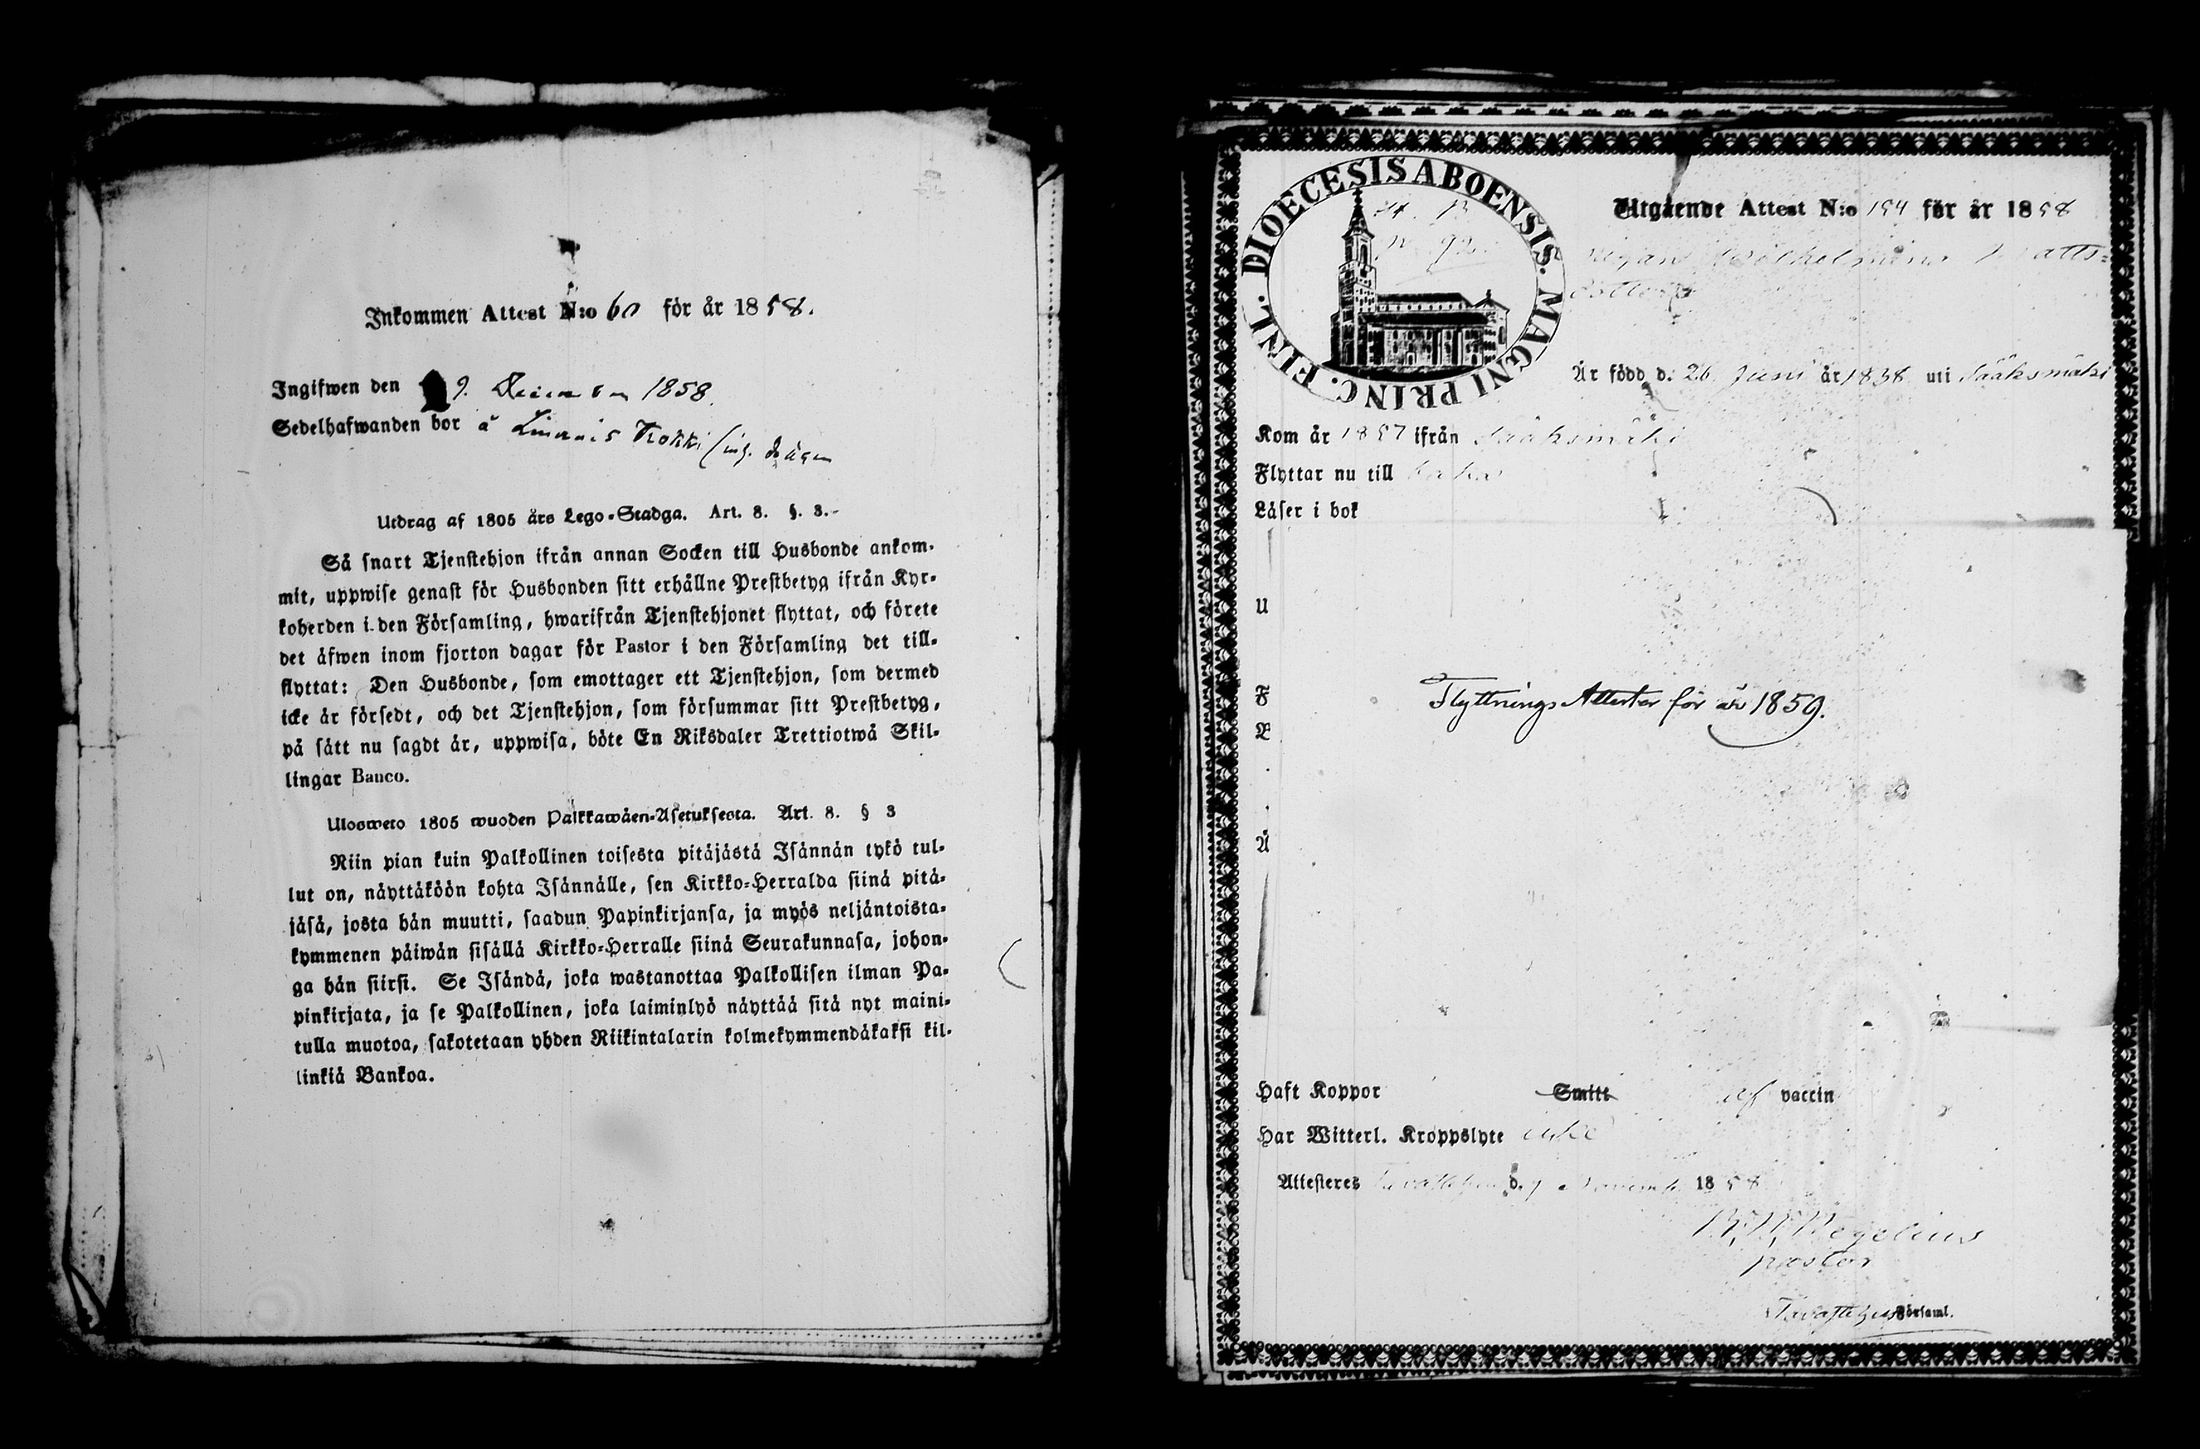 Inkommen Attest N:o 60 för år 1858.
Ingifwen den 9. December 1858.
Sedelhafwanden bor å
Utdrag af 1805 års Lego-Stadga. Art. 8. §. 3.
Så snart Tjenstehjon ifrån annan Socken till Husbonde ankom-
mit, uppwise genast för Husbonden sitt erhållne Prestbetyg ifrån Kyr-
koherden i den Församling, hwarifrån Tjenstehjonet flyttat, och förete
det äfwen inom fjorton dagar för Pastor i den Församling det till-
flyttat: Den Husbonde, som emottager ett Tjenstehjon, som dermed
icke är försedt, och det Tjenstehjon, som försummar sitt Prestbetyg,
på sätt nu sagdt är, uppwisa, böte En Riksdaler Trettiotwå Skil-
lingar Banco.
Ulosweto 1805 wuoden Palkkawäen-Asetuksesta. Art. 8. § 3
Niin pian kuin Palkollinen toisesta pitäjästä Isännän tykö tul-
lut on, näyttäköön kohta Isännälle, sen Kirkko-Herralda siinä pitä-
jäsä, josta hän muutti, saadun Papinkirjansa, ja myös neljäntoista-
kymmenen päiwän sisällä Kirkko-Herralle siinä Seurakunnasa, johon-
ga hän siirsi. Se Isändä, joka wastanottaa Palkollisen ilman Pa-
pinkirjata, ja se Palkollinen, joka laiminlyö näyttää sitä nyt maini-
tulla muotoa, sakotetaan yhden Riikintalarin kolmekymmendäkaksi kil-
linkiä Bankoa.
DIOECESIS ABOENSIS. MAGNI PRINC. FINL.
Utgående Attest N:o 154 för år 1858
Pigan Wilhelmina Matts-
dotter
Är född d. 26 Juni år 1838 uti Sääksmäki
Kom år 1857 ifrån Sääksmäki
Flyttar nu till
Läser i bok
U
F
Flyttnings Attester för år 1859.
Ä
Haft Koppor Smitt af vaccin
Har Witterl. Kroppslyte icke
Attesteres Tavastehus d. 9 November 1858
Wegelius
pastor
Tavastehus Församl.